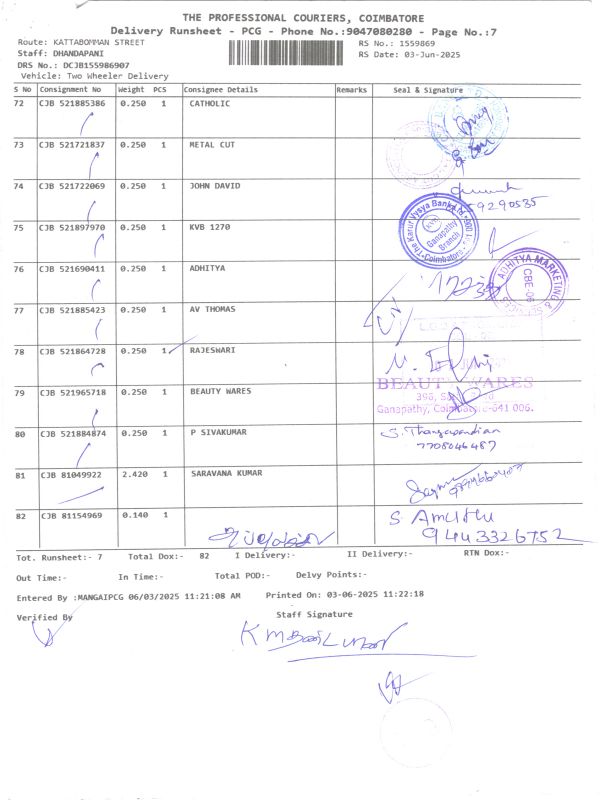 THE PROFESSIONAL COURIERS, COIMBATORE
Delivery Runsheet - PCG - Phone No.:9047080280 - Page No.:7
Route: KATTABOMMAN STREET RS No.: 1559869
Staff: DHANDAPANI RS Date: 03-Jun-2025
DRS No.: DCJB155986907
Vehicle: Two Wheeler Delivery
S No Consignment No Weight PCS Consignee Details Remarks Seal & Signature
72 CJB 521885386 0.250 1 CATHOLIC
73 CJB 521721837 0.250 1 METAL CUT
74 CJB 521722069 0.250 1 JOHN DAVID
9290535
75 CJB 521897970 0.250 1 KVB 1270
The Karur Vysya Bank Ltd
KVB
Ganapathy
Branch
Coimbatore
76 CJB 521690411 0.250 1 ADHITYA
ADHITYA MARKETING &
CBE-06
77 CJB 521885423 0.250 1 AV THOMAS
78 CJB 521864728 0.250 1 RAJESWARI
79 CJB 521965718 0.250 1 BEAUTY WARES
BEAUTY WARES
Ganapathy, Coimbatore-641 006.
80 CJB 521884874 0.250 1 P SIVAKUMAR
S. Thangapandian
7708046487
81 CJB 81049922 2.420 1 SARAVANA KUMAR
82 CJB 81154969 0.140 1
S AMUTHU
9443326752
Tot. Runsheet:- 7 Total Dox:- 82 I Delivery:- II Delivery:- RTN Dox:-
Out Time:- In Time:- Total POD:- Delvy Points:-
Entered By :MANGAIPCG 06/03/2025 11:21:08 AM Printed On: 03-06-2025 11:22:18
Verified By Staff Signature